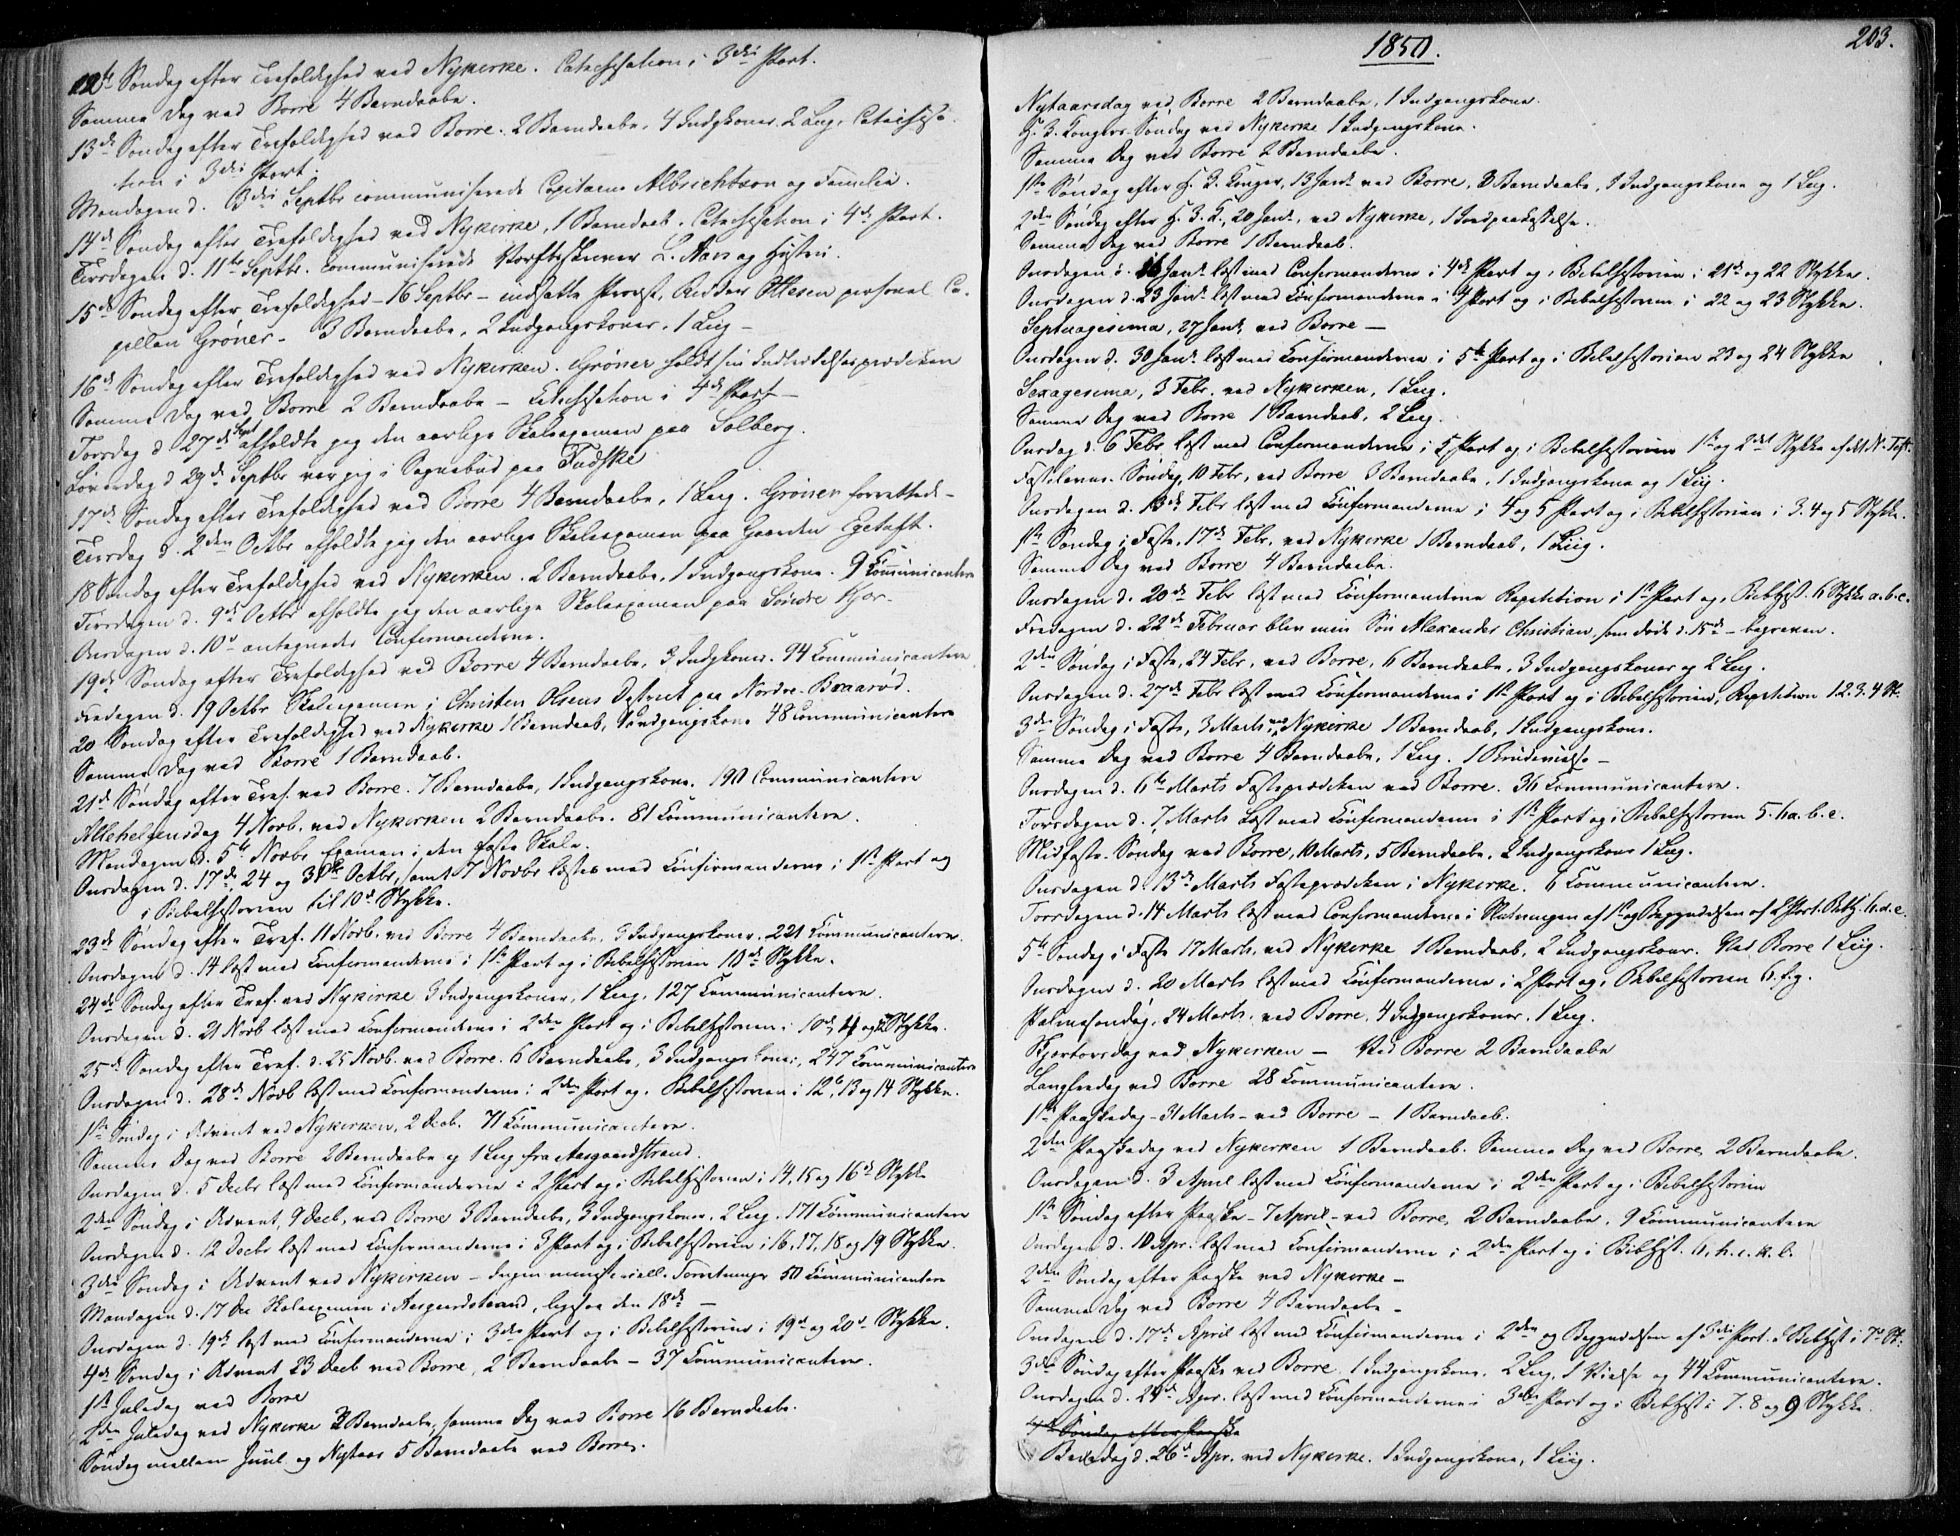 12te Søndag efter Trefoldighed ved Nykirke. Catechisation i 3die Part.
Samme Dag ved Borre 4 Barndaabe.
13de Søndag efter Trefoldighed ved Borre. 2 Barndaabe, 4 Indgkoner, 2 Liig, Catechisa-
tion i 3die Part.
Mandagen d. 3die Septbr communiserede Capitain Albrichtson og Familie.
14de Søndag efter Trefoldighed ved Nykirke, 1 Barndaab. Catechisation i 4de Part.
Tirsdagen d. 11te Septbr. communiserede Worfbeskriver L. Aars og Hustru.
15de Søndag efter Trefoldighed - 16 Septbr - indsatte Provst, Ridder personel Ca-
pellan Grøner - 3 Barndaabe, 2 Indgangskoner, 1 Liig -
16de Søndag efter Trefoldighed ved Nykirken. Grøner holdt sin Indtrædelsesprædiken
Samme Dag ved Borre 2 Barndaabe - Catechisation i 4de Part -
Torsdag d 27de Sept afholdte jeg den aarlige Skoleexamen paa Solberg.
Løverdag d 29de Septbr var jeg i Sognebud paa Fudske
17de Søndag efter Trefoldighed ved Borre 4 Barndaabe, 1 Liig. Grøner forrettede -
Tirsdag d. 2den Octbr afholdte jeg den aarlige Skoleexamen paa Gaarden Egetoft.
18 Søndag efter Trefoldighed ved Nykirken. 2 Barndaabe, 1 Indgangskone. 9 Communicantere
Tirsdagen d. 9de Octbr afholdte jeg den aarlige Skoleexamen paa Søndre Kjær
Onsdagen d. 10de antegnedes Confirmanderne.
19de Søndag efter Trefoldighed ved Borre 4 Barndaabe, 3 Indgkoner. 94 Communicantere
Fredagen d. 19 Octbr Skoleexamen i Christen Olsens District paa Nordre-Braarød.
20 Søndag efter Trefoldighed ved Nykirke 1 Barndaab, 1 Indgangskone 48 Communicantere
Samme Dag ved Borre 1 Barndaab.
21de Søndag efter Tref. ved Borre. 7 Barndaabe, 1 Indgangskone. 190 Communicantere
Allehelgensdag 4 Novb. ved Nykirken 2 Barndaabe. 81 Communicantere.
Mandagen d. 5te Novbr Examen i den faste Skole.
Onsdagen d. 17de, 24 og 31te Octbr, samt 7 Novbr læstes med Confirmanderne i 1ste Part og
i Bibelhistorien til 10de Stykke.
23de Søndag efter Tref. 11 Novb. ved Borre 4 Barndaabe, 3 Indgangskoner. 221 Communicantere.
Onsdagen d. 14 læst med Confirmanderne i 1ste Part og i Bibelhistorien 10de Stykke.
24de Søndag efter Tref. ved Nykirke 3 Indgangskoner, 1 Liig, 127 Communicantere.
Onsdagen d. 21 Novb læst med Confirmanderne i 2den Part og i Bibelhistorien i 10de, 11 og 12 Stykke.
25de Søndag efter Tref. d. 25 Novb. ved Borre. 6 Barndaabe, 3 Indgangskoner, 247 Communicantere
Onsdagen d. 28de Novb læst med Confirmanderne i 2den Part og i Bibelhistorien i 12te, 13 og 14 Stykke.
1ste Søndag i Advent ved Nykirken, 2 Decb. 71 Communicantere.
Samme Dag ved Borre 2 Barndaabe og 1 Liig fra Aasgaardstrand.
Onsdagen d. 5 Decbr læst med Confirmanderne i 2 Part og i Bibelhistorien i 14, 15 og 16de Stykke
2den Søndag i Advent, 9 Decb, ved Borre 3 Barndaabe, 3 Indgangskoner, 2 Liig. 171 Communicantere
Onsdagen d. 12 Decbr læst med Confirmanderne i 3 Part og i Bibelhistorien i 16, 17, 18 og 19 Stykke.
3die Søndag i Advent ved Nykirken - Ingen ministeriell Forretninger 50 Communicantere
Mandagen d. 17 Dec Skoleexamen i Aasgaardstrand, ligesaa den 18de -
Onsdagen d. 19de læst med Confirmanderne i 3die Part og i Bibelhistorien i 19de og 20de Stykke.
4de Søndag i Advent 23 Decb ved Borre, 2 Barndaabe - 37 Communicantere.
1ste Juledag ved Borre
2den Juledag ved Nykirke 2 Barndaabe, samme Dag ved Borre 16 Barndaabe.
Søndag mellem Juul og Nytaar 5 Barndaabe ved Borre.
1850.
203.
Nytaarsdag ved Borre 2 Barndaabe, 1 Indgangskone.
H. 3. Kongers-Søndag ved Nykirke 1 Indgangskone.
Samme Dag ved Borre 2 Barndaabe.
1ste Søndag efter H. 3. Konger, 13 Jan. ved Borre, 3 Barndaabe, 1 Indgangskone og 1 Liig.
2den Søndag efter H. 3. K., 20 Jan., ved Nykirke, 1 Jordpaakastelse.
Samme Dag ved Borre 1 Barndaab.
Onsdagen d. 16 Jan. læst med Confirmanderne i 4de Part og i Bibelhistorien i 21de og 22 Stykke.
Onsdagen d. 23 Jan. læst med Confirmanderne i 4 Part og i Bibelhistorien i 22 og 23 Stykke.
Septuagesima, 27 Jan. ved Borre -
Onsdagen d. 30 Jan. læst med Confirmanderne i 5te Part og i Bibelhistorien 23 og 24 Stykke
Sexagesima, 3 Febr. ved Nykirken, 1 Liig.
Samme Dag ved Borre 1 Barndaab, 2 Liig.
Onsdag d. 6 Febr læst med Confirmanderne i 5 Part og i Bibelhistorien 1ste og 2det Stykke af det N. Test.
Fastelavns-Søndag, 10 Febr, ved Borre 3 Barndaabe, 1 Indgangskone og 1 Liig.
Onsdagen d. 13de Febr læst med Confirmanderne i 4 og 5 Part og i Bibelhistorien i 3. 4 og 5 Stykke.
1ste Søndag i Faste, 17de Febr, ved Nykirke 1 Barndaab, 1 Liig.
Samme Dag ved Borre 4 Barndaabe.
Onsdagen d. 20de Febr læst med Confirmanderne Repetition i 1ste Part og i Bibhist. 6 Stykke a. b. c.
Fredagen d. 22de Februar blev min Søn Alexander Christian, som døde d. 15de - begraven.
2den Søndag i Faste, 24 Febr, ved Borre, 6 Barndaabe, 3 Indgangskoner og 2 Liig.
Onsdagen d. 27de Febr læst med Confirmanderne i 1ste Part og i Bibelhistorien, Repetition 1. 2. 3. 4 St.
3die Søndag i Faste, 3 Marts, ved Nykirke 1 Barndaab, 1 Indgangskone.
Samme Dag ved Borre 4 Barndaabe, 1 Liig. 1 Brudevielse -
Onsdagen d. 6te Marts Fasteprædiken ved Borre. 36 Communicantere.
Torsdagen d. 7 Marts læst med Confirmanderne i 1ste Part og i Bibelhistorien 5. 6 a. b. c.
Midfaste-Søndag ved Borre, 10 Marts, 5 Barndaabe, 2 Indgangskoner 1 Liig.
Onsdagen d. 13de Marts Fasteprædiken i Nykirke. 6 Communicantere.
Torsdagen d. 14 Marts læst med Confirmanderne i Slutningen af 1ste og Begyndelsen af 2 Part. Bibh. 6. d. e.
5te Søndag i Faste 17 Marts, ved Nykirke 1 Barndaab, 2 Indgangskoner. Ved Borre 1 Liig.
Onsdagen d. 20 Marts læst med Confirmanderne i 2 Part og i Bibelhistorien 6. f. g.
Palmesøndag, 24 Marts, ved Borre, 4 Indgangskoner, 1 Liig.
Skjertorsdag ved Nykirken - Ved Borre 2 Barndaabe
Langfredag ved Borre 28 Communicantere.
1ste Paaskedag - 31 Marts - ved Borre - 1 Barndaab.
2den Paaskedag ved Nykirken 1 Barndaab. Samme Dag ved Borre, 2 Barndaabe.
Onsdagen d. 3 April læst med Confirmanderne i 2den Part og i Bibelhistorien
1ste Søndag efter Paaske - 7 April - ved Borre, 2 Barndaabe, 9 Communicantere
Onsdagen d. 10 Apr. læst med Confirmanderne i 2den Part og i Bibhist. 6, h. i. k. l.
2den Søndag efter Paaske ved Nykirke -
Samme Dag ved Borre 4 Barndaabe -
Onsdagen d. 17de April læst med Confirmanderne i 2den og Begyndelsen af 3die Part. I Bibhist i 7de St.
3die Søndag efter Paaske ved Borre. 1 Indgangskone, 2 Liig, 1 Vielse og 44 Communicantere.
Onsdagen d. 24de Apr. læst med Confirmanderne i 3die Part og i Bibhist i 7. 8 og 9 Stykke.
4de Søndag efter Paaske
Bededag d. 26de Apr. ved Nykirke. 1 Indgangskone, 1 Liig.